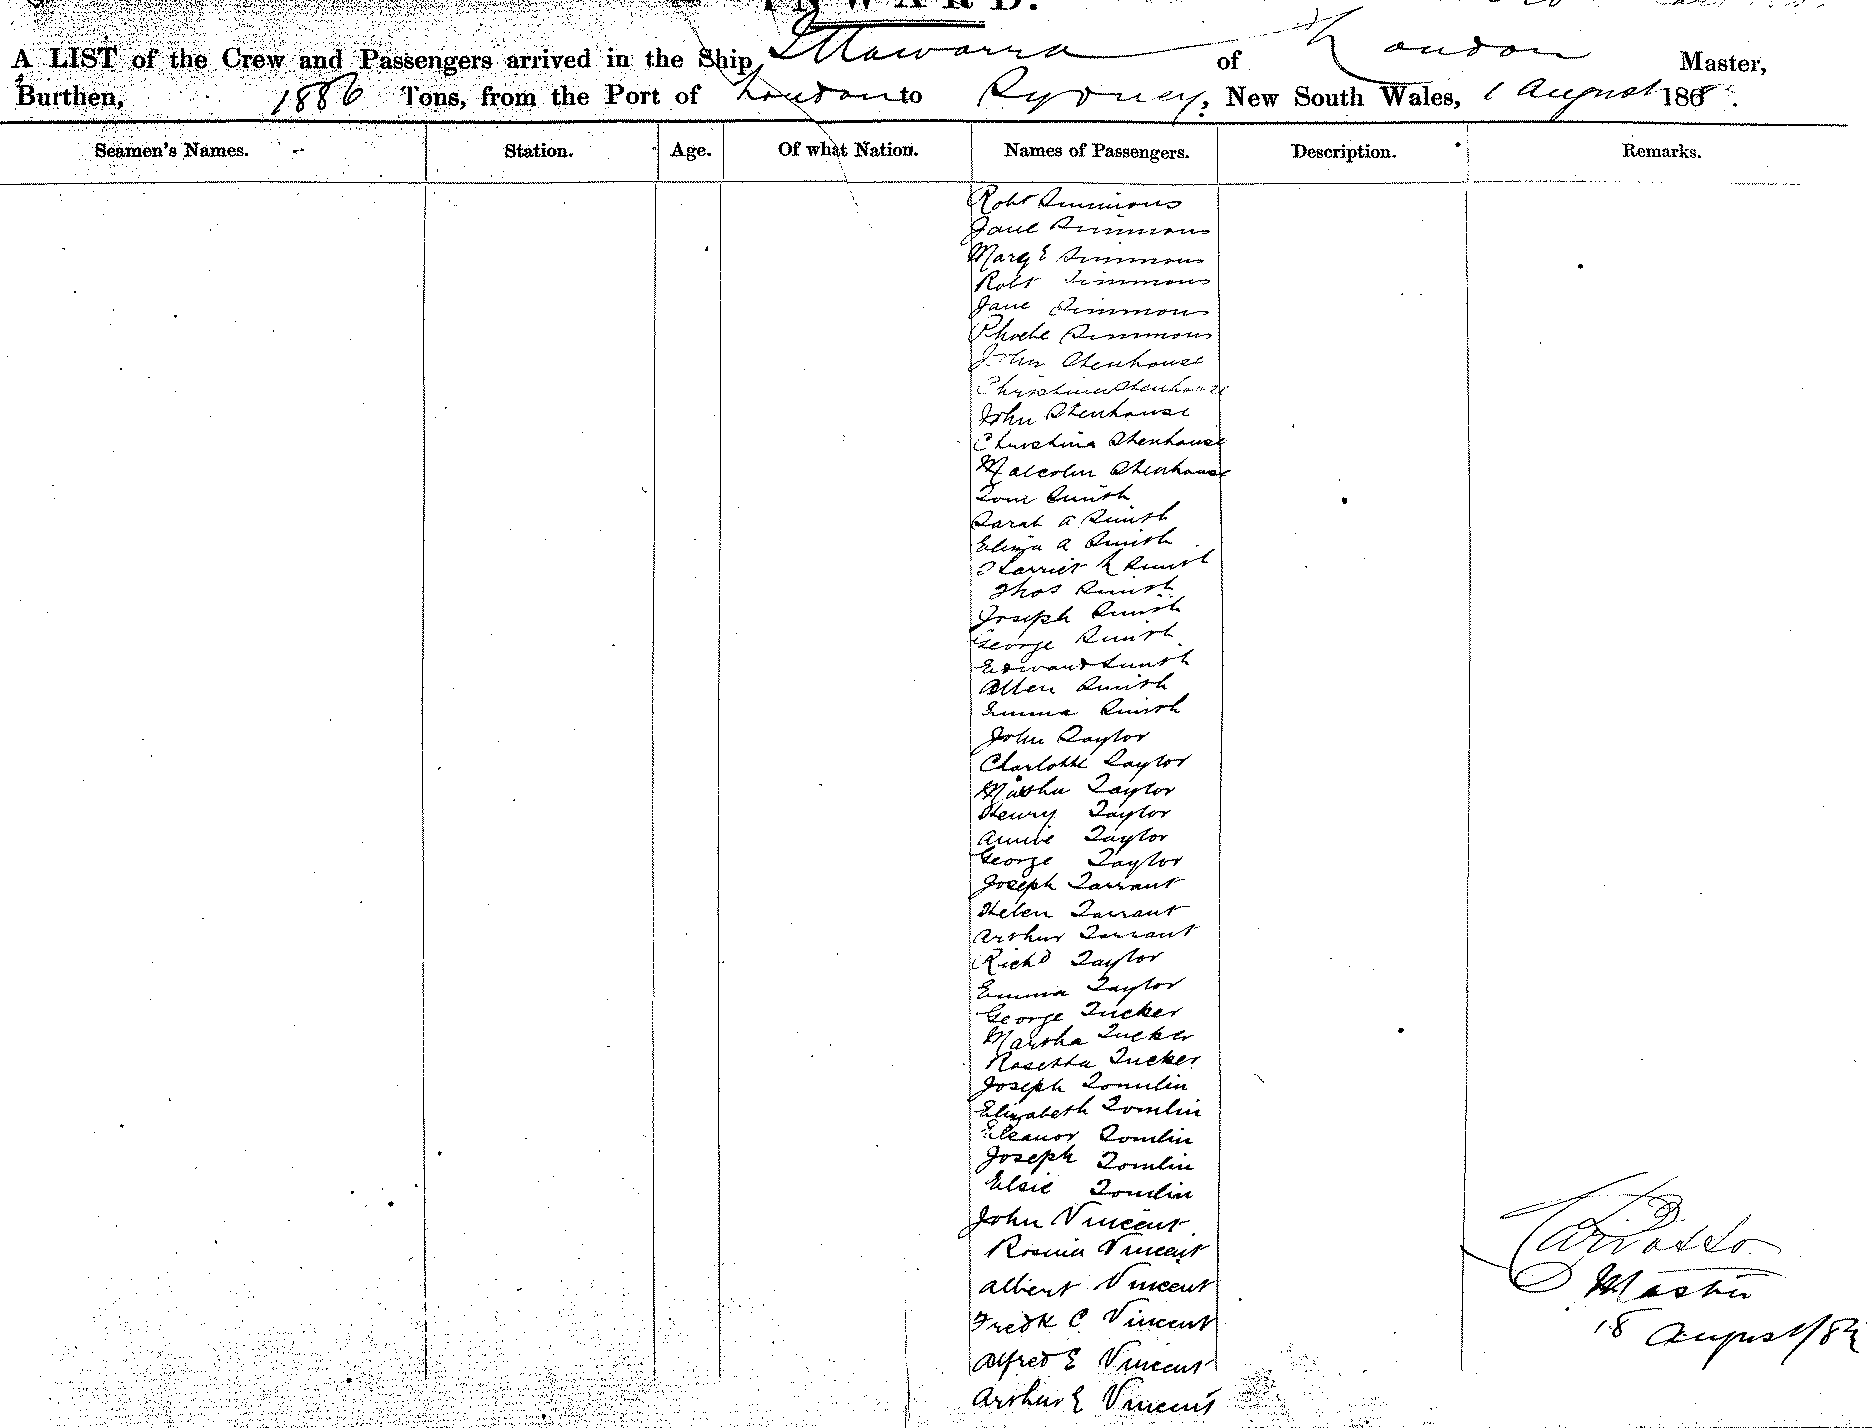 INWARD.
A LIST of the Crew and Passengers arrived in the Ship Illawarra of London Master,
Burthen, 1886 Tons, from the Port of London to Sydney, New South Wales, 1 August 188
Seamen's Names. Station. Age. Of what Nation. Names of Passengers. Description. Remarks.
Robt Simmons
Jane Simmons
Mary E Simmons
Robt Simmons
Jane Simmons
Phoebe Simmons
John Stenhouse
Christina Stenhouse
John Stenhouse
Christina Stenhouse
Malcolm Stenhouse
Tom Smith
Sarah A Smith
Eliza A Smith
Harriet Smith
Thos Smith
Joseph Smith
George Smith
Edward Smith
Allen Smith
Emma Smith
John Taylor
Charlotte Taylor
Martha Taylor
Henry Taylor
Annie Taylor
George Taylor
Joseph Tarrant
Helen Tarrant
Arthur Tarrant
Richd Taylor
Emma Taylor
George Tucker
Martha Tucker
Rosetta Tucker
Joseph Tomlin
Elizabeth Tomlin
Eleanor Tomlin
Joseph Tomlin
Elsie Tomlin
John Vincent
Rosina Vincent
Albert Vincent
Fredk C Vincent
Alfred E Vincent
Arthur E Vincent
Master
18 August/82